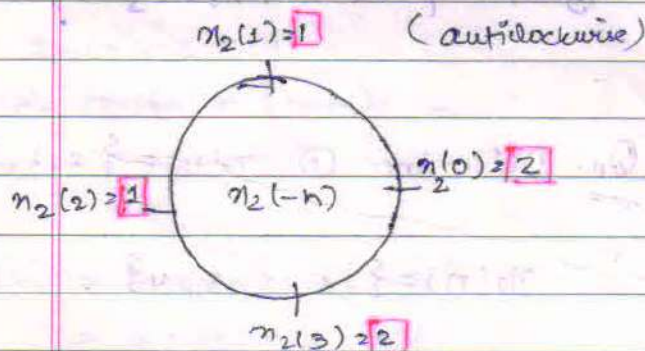 x₂(1) = 1 (anticlockwise)
x₂(0) = 2
x₂(2) = 1
x₂(-n)
x₂(3) = 2